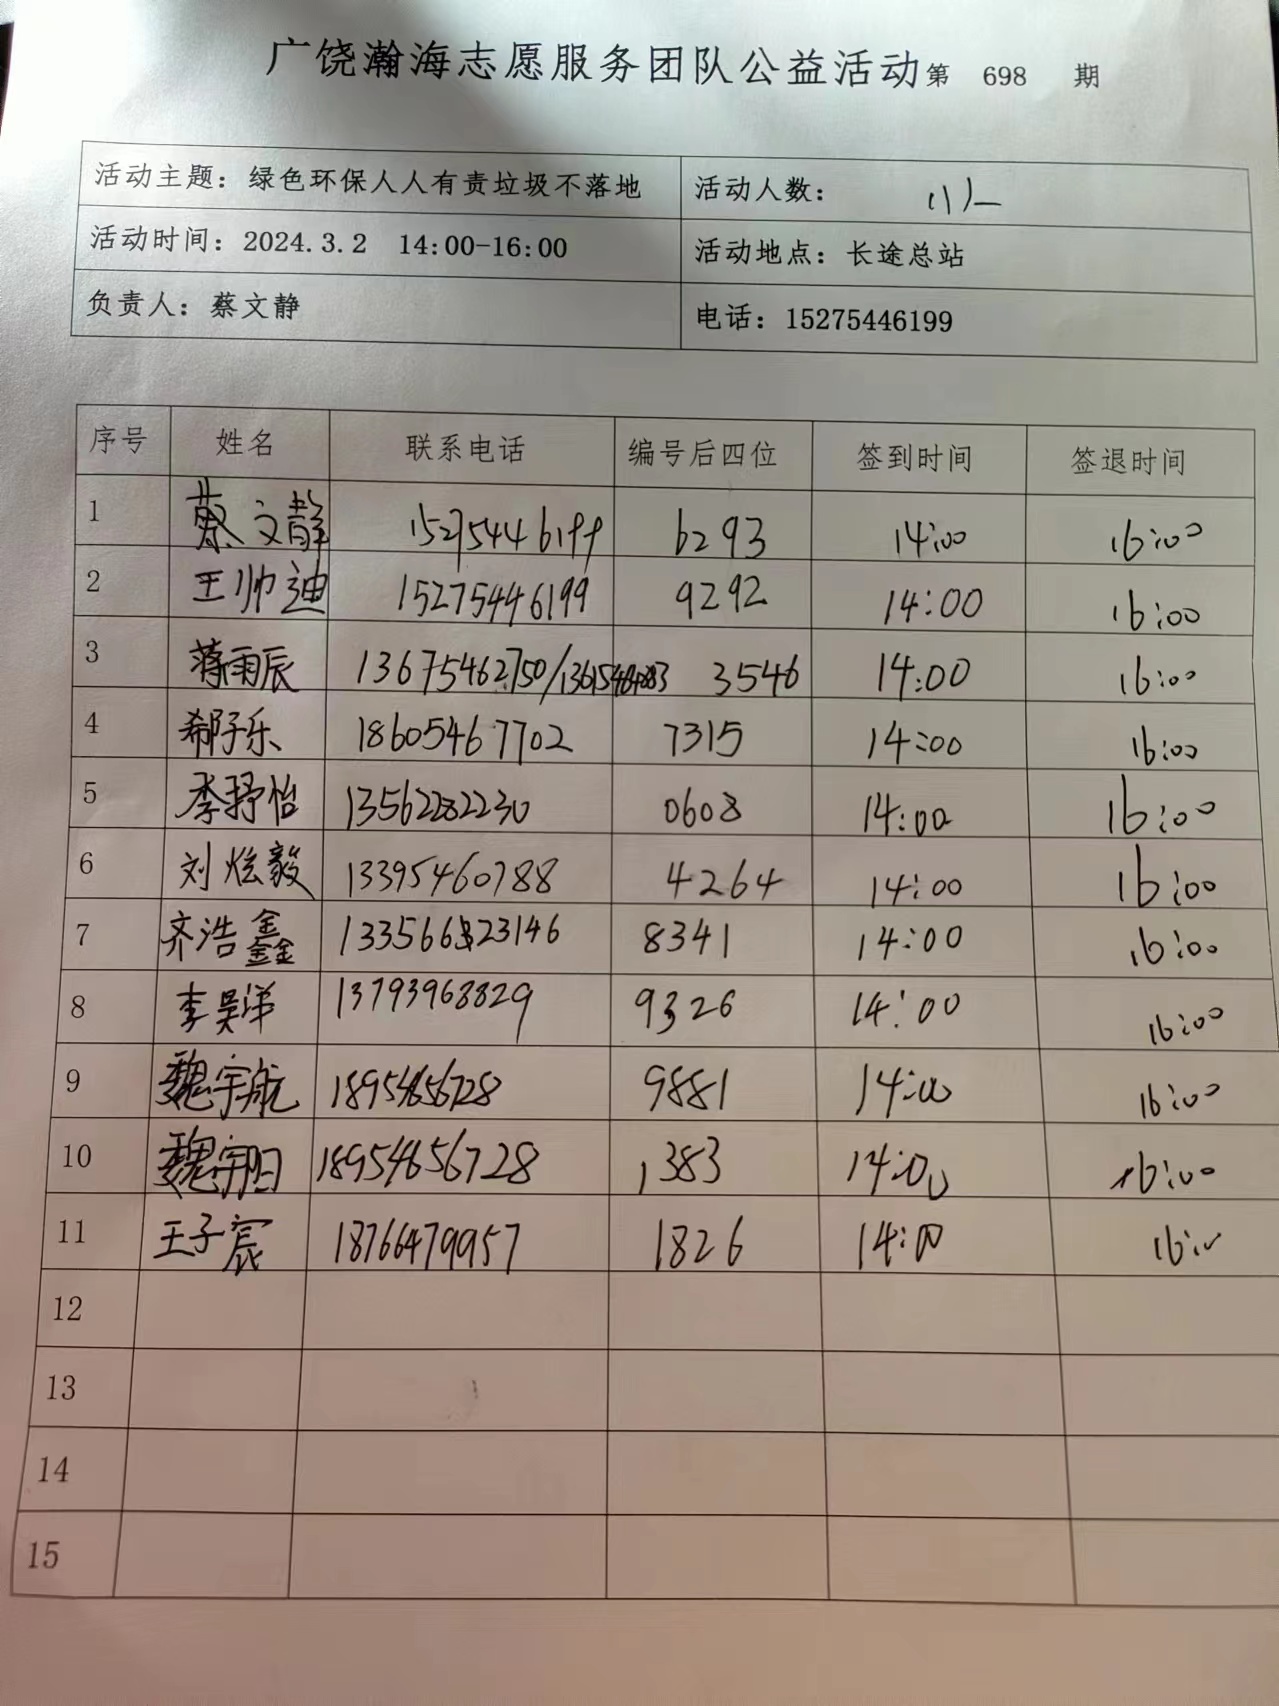 广饶瀚海志愿服务团队公益活动第 698 期
活动主题：绿色环保人人有责垃圾不落地 活动人数： 11人
活动时间：2024.3.2 14:00-16:00 活动地点：长途总站
负责人：蔡文静 电话：15275446199
序号 姓名 联系电话 编号后四位 签到时间 签退时间
1 蔡文静 15275446199 6293 14:00 16:00
2 王帅迪 15275446199 9292 14:00 16:00
3 蒋雨辰 13675462750/ 3546 14:00 16:00
4 郗子乐 18605467702 7315 14:00 16:00
5 李抒怡 13562282230 0608 14:00 16:00
6 刘炫毅 13395460788 4264 14:00 16:00
7 齐浩鑫 8341 14:00 16:00
8 李昊洋 13793968829 9326 14:00 16:00
9 魏宇航 18954656728 9881 14:00 16:00
10 魏宇阳 18954656728 1383 14:00 16:00
11 王子宸 18766479957 1826 14:00 16:00
12
13
14
15